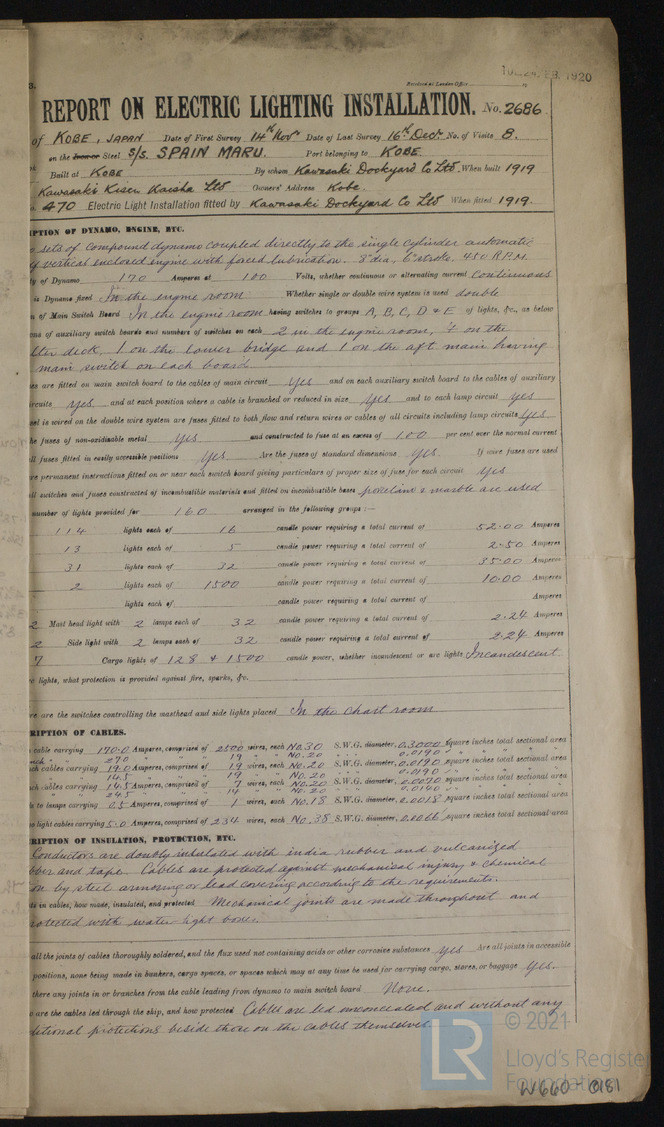 Received at London Office
REPORT ON ELECTRIC LIGHTING INSTALLATION. No. 2686
of KOBE, JAPAN Date of First Survey 14th Nov Date of Last Survey 16th Dec. No. of Visits 8.
on the Iron or Steel S/S. SPAIN MARU. Port belonging to KOBE.
Built at KOBE By whom Kawasaki Dockyard Co Ltd. When built 1919
Kawasaki's Kisen Kaisha Ltd Owners' Address Kobe.
470 Electric Light Installation fitted by Kawasaki Dockyard Co Ltd When fitted 1919.
IPTION OF DYNAMO, ENGINE, ETC.
sets of compound dynamo coupled directly to the single cylinder automatic
vertical enclosed engine with forced lubrication. 8" dia, 6" stroke, 450 R.P.M.
ty of Dynamo 170 Amperes at 100 Volts, whether continuous or alternating current Continuous
is Dynamo fixed In the engine room Whether single or double wire system is used double
n of Main Switch Board In the engine room having switches to groups A, B, C, D & E of lights, &c., as below
ons of auxiliary switch boards and numbers of switches on each 2 in the engine room, on the
lter deck, 1 on the lower bridge and 1 on the aft main having
main switch on each board.
es are fitted on main switch board to the cables of main circuit yes and on each auxiliary switch board to the cables of auxiliary
ircuits yes and at each position where a cable is branched or reduced in size yes and to each lamp circuit yes
sel is wired on the double wire system are fuses fitted to both flow and return wires or cables of all circuits including lamp circuits yes
he fuses of non-oxidizable metal yes and constructed to fuse at an excess of 100 per cent over the normal current
ll fuses fitted in easily accessible positions yes Are the fuses of standard dimensions yes. If wire fuses are used
re permanent instructions fitted on or near each switch board giving particulars of proper size of fuse for each circuit yes
ll switches and fuses constructed of incombustible materials and fitted on incombustible bases porcelain & marble are used
number of lights provided for 160 arranged in the following groups :—
114 lights each of 16 candle power requiring a total current of 52.00 Amperes
13 lights each of 5 candle power requiring a total current of 2.50 Amperes
31 lights each of 32 candle power requiring a total current of 35.00 Amperes
2 lights each of 1500 candle power requiring a total current of 10.00 Amperes
lights each of candle power requiring a total current of Amperes
2 Mast head light with 2 lamps each of 32 candle power requiring a total current of 2.24 Amperes
2 Side light with 2 lamps each of 32 candle power requiring a total current of 2.24 Amperes
7 Cargo lights of 128 & 1500 candle power, whether incandescent or arc lights Incandescent
c lights, what protection is provided against fire, sparks, &c.
re are the switches controlling the masthead and side lights placed In the Chart room
RIPTION OF CABLES.
cable carrying 170.0 Amperes, comprised of 2500 wires, each No. 30 S.W.G. diameter, 0.3000 square inches total sectional area
27.0 19 No. 20 0.0190
ch cables carrying 19.0 Amperes, comprised of 19 wires, each No. 20 S.W.G. diameter, 0.0190 square inches total sectional area
14.5 19 No. 20 0.0190
ch cables carrying 14.5 Amperes, comprised of 7 wires, each No. 20 S.W.G. diameter, 0.0070 square inches total sectional area
24.5 14 No. 20 0.0140
le to lamps carrying 0.5 Amperes, comprised of 1 wires, each No. 18 S.W.G. diameter, 0.0018 square inches total sectional area
o light cables carrying 5.0 Amperes, comprised of 234 wires, each No. 38 S.W.G. diameter, 0.0066 square inches total sectional area
RIPTION OF INSULATION, PROTECTION, ETC.
Conductors are doubly insulated with india rubber and vulcanized
bber and tape. Cables are protected against mechanical injury & chemical
on by steel armoring or lead covering according to the requirements.
ts in cables, how made, insulated, and protected Mechanical joints are made throughout and
rotected with water-tight boxes.
all the joints of cables thoroughly soldered, and the flux used not containing acids or other corrosive substances yes Are all joints in accessible
positions, none being made in bunkers, cargo spaces, or spaces which may at any time be used for carrying cargo, stores, or baggage yes.
there any joints in or branches from the cable leading from dynamo to main switch board None.
o are the cables led through the ship, and how protected Cables are led unconcealed and without any
ditional protections beside those on the cables themselves.
LR
© 2021
Lloyd's Register
Foundation
W660-0181